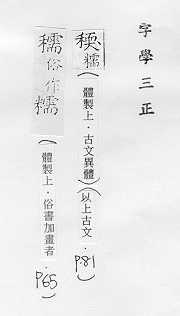 字學三正
稬糯(體製上．古文異體)(以上古文．p.81)
穤俗作糯(體製上．俗書加畫者．p65)